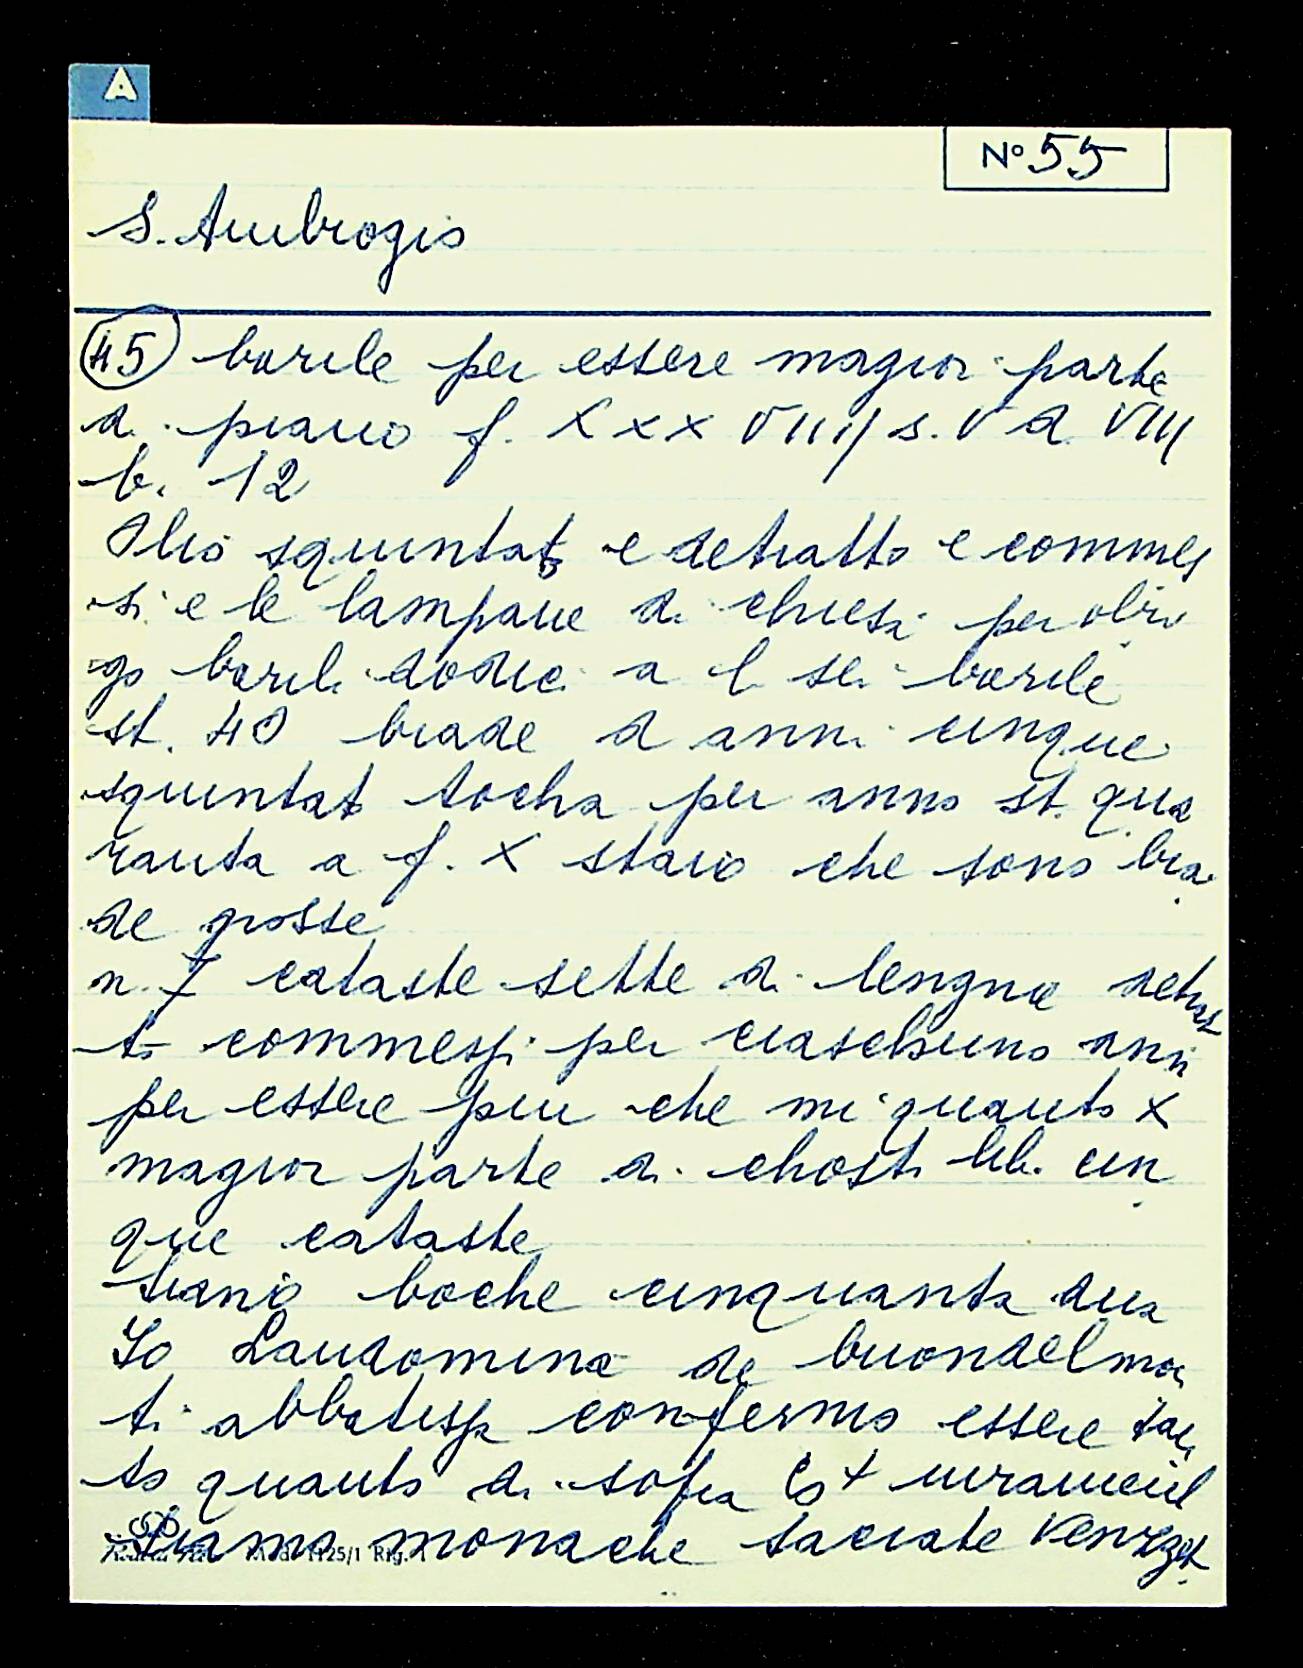 A
N° 55
S. Ambrogio
45 barile per essere magior parte
di piano f. XXX VIIII s. V d VIII
b. 12
Olio squintato e detratto e commes
si e le lampane di chiesa per obri
go barili dodici a l sei barile
st. 40 biade d anni cinque
squintat tocha per anno st. qua
ranta a f. X staio che sono bia
de grosse
n. 7 cataste sette di lengne detrat
to commessi per ciaschuno anno
per essere piu che mi quanto x
magior parte di chosti lib. cin
que cataste
siano boche cinquanta dua
Io Laudomina de buondelmon
ti abbatissa confermo essere tan
to quanto di sopra
siamo monache sacrate
Mod. 1125/1 Rig. 1